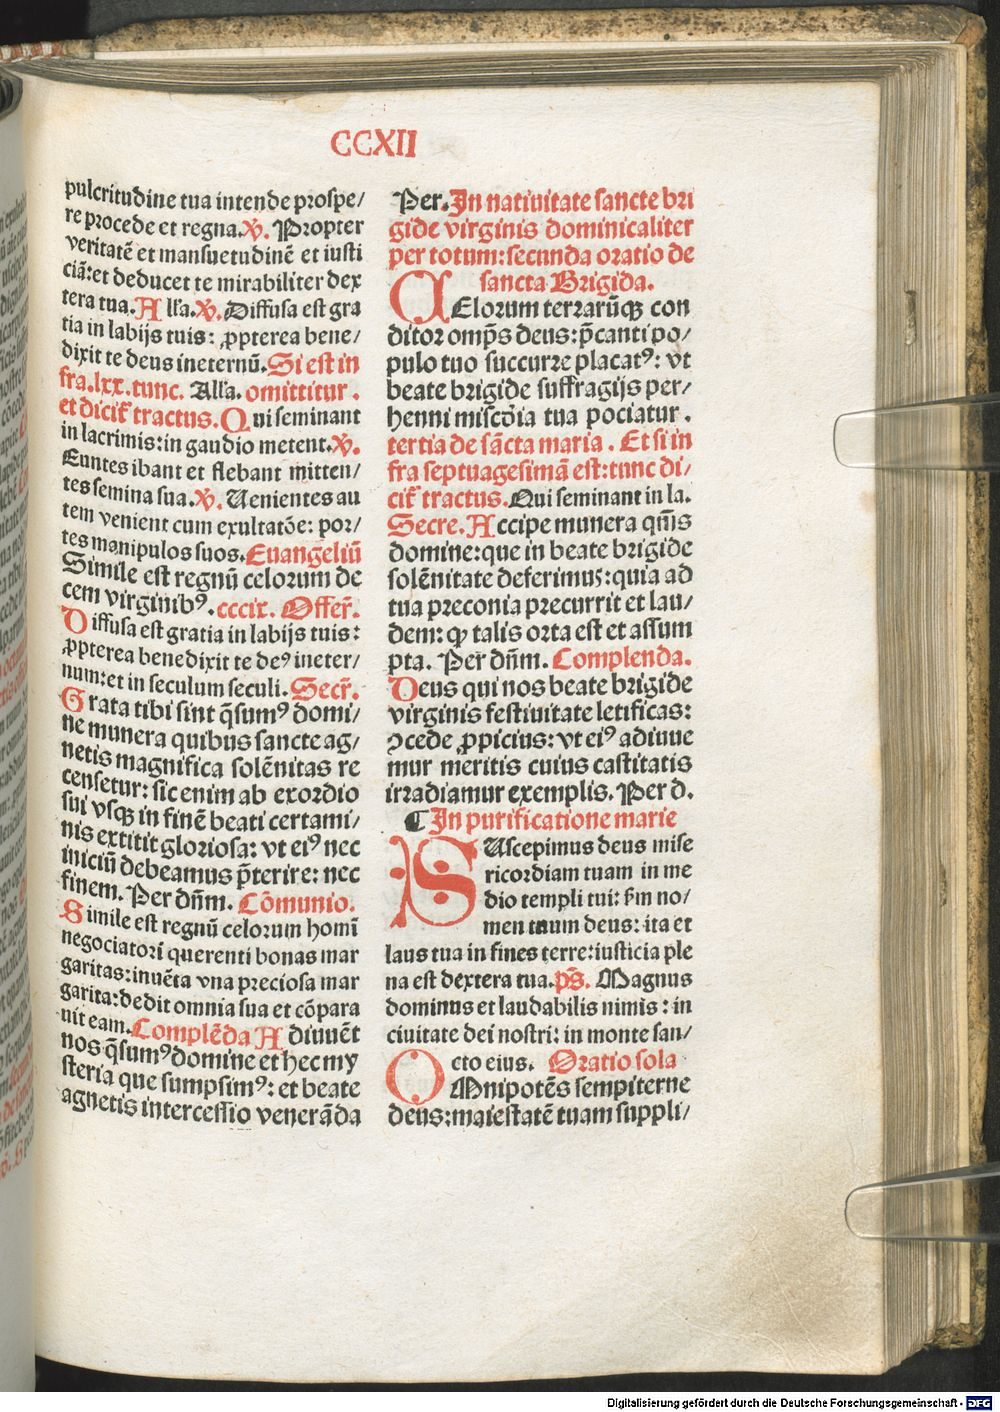 CCXII
pulcritudine tua intende prospe/
re procede et regna.℣. Propter
veritatē et mansuetudinē et iusti
ciā: et deducet te mirabiliter dex
tera tua. Alla. ℣. Diffusa est gra
tia in labijs tuis: ꝓpterea bene/
dixit te deus ineternū. Si est in
fra.lxx.tunc. Alla. omittitur.
et dicit̄ tractus. Qui seminant
in lacrimis: in gaudio metent.℣.
Euntes ibant et flebant mitten/
tes semina sua.℣. Uenientes au
tem venient cum exultatōe: por/
tes manipulos suos. Euangeliū
Simile est regnū celorum de
cem virginibꝰ. cccix. Offer̄.
Diffusa est gratia in labijs tuis:
ꝓpterea benedixit te deꝰ ineter/
num: et in seculum seculi. Secr̄.
Grata tibi sint q̄sumꝰ domi/
ne munera quibus sancte ag/
netis magnifica solēnitas re
censetur: sic enim ab exordio
sui vsqꝫ in finē beati certami/
nis extitit gloriosa: vt eiꝰ nec
iniciū debeamus p̄terire: nec
finem. Per dn̄m. Cōmunio.
Simile est regnū celorum homī
negociatori querenti bonas mar
garitas: inuēta vna preciosa mar
garita: dedit omnia sua et cōpara
uit eam. Complēda Adiuuēt
nos q̄sumꝰ domine et hec my
steria que sumpsimꝰ: et beate
agnetis intercessio venerāda
Per. In natiuitate sancte bri
gide virginis dominicaliter
per totum: secunda oratio de
sancta Brigida.
CElorum terrarūqꝫ con
ditor omp̄s deus: p̄canti po/
pulo tuo succurre placatꝰ: vt
beate brigide suffragijs per/
henni miscōia tua pociatur.
tertia de sācta maria. Et si in
fra septuagesimā est: tunc di/
cit̄ tractus. Qui seminant in la.
Secre. Accipe munera qm̄s
domine: que in beate brigide
solēnitate deferimus: quia ad
tua preconia precurrit et lau/
dem: qꝫ talis orta est et assum
pta. Per dn̄m. Complenda.
Deus qui nos beate brigide
virginis festiuitate letificas:
ꝯcede ꝓpicius: vt eiꝰ adiuue
mur meritis cuius castitatis
irradiamur exemplis. Per d.
¶ In purificatione marie
SUscepimus deus mise
ricordiam tuam in me
dio templi tui: sm̄ no/
men tuum deus: ita et
laus tua in fines terre: iusticia ple
na est dextera tua. ps̄. Magnus
dominus et laudabilis nimis: in
ciuitate dei nostri: in monte san/
cto eius. Oratio sola
OMnipotēs sempiterne
deus: maiestatē tuam suppli/
Digitalisierung gefördert durch die Deutsche Forschungsgemeinschaft - DFG